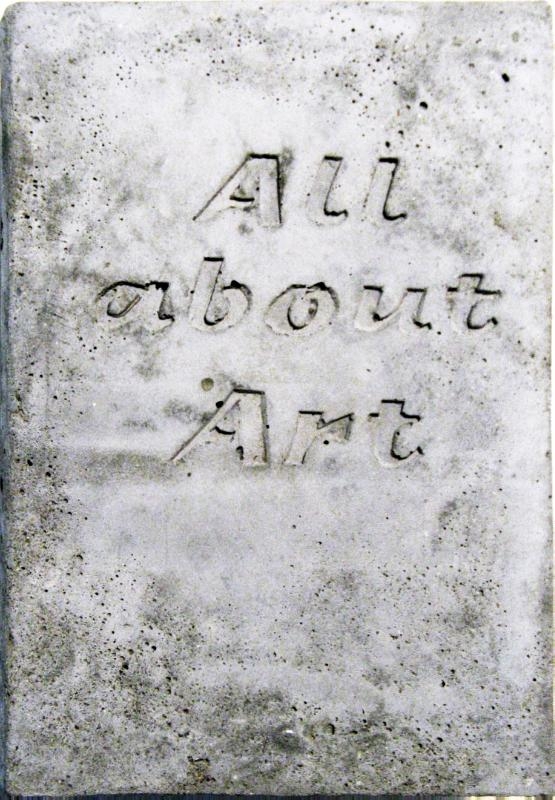 All
about
Art